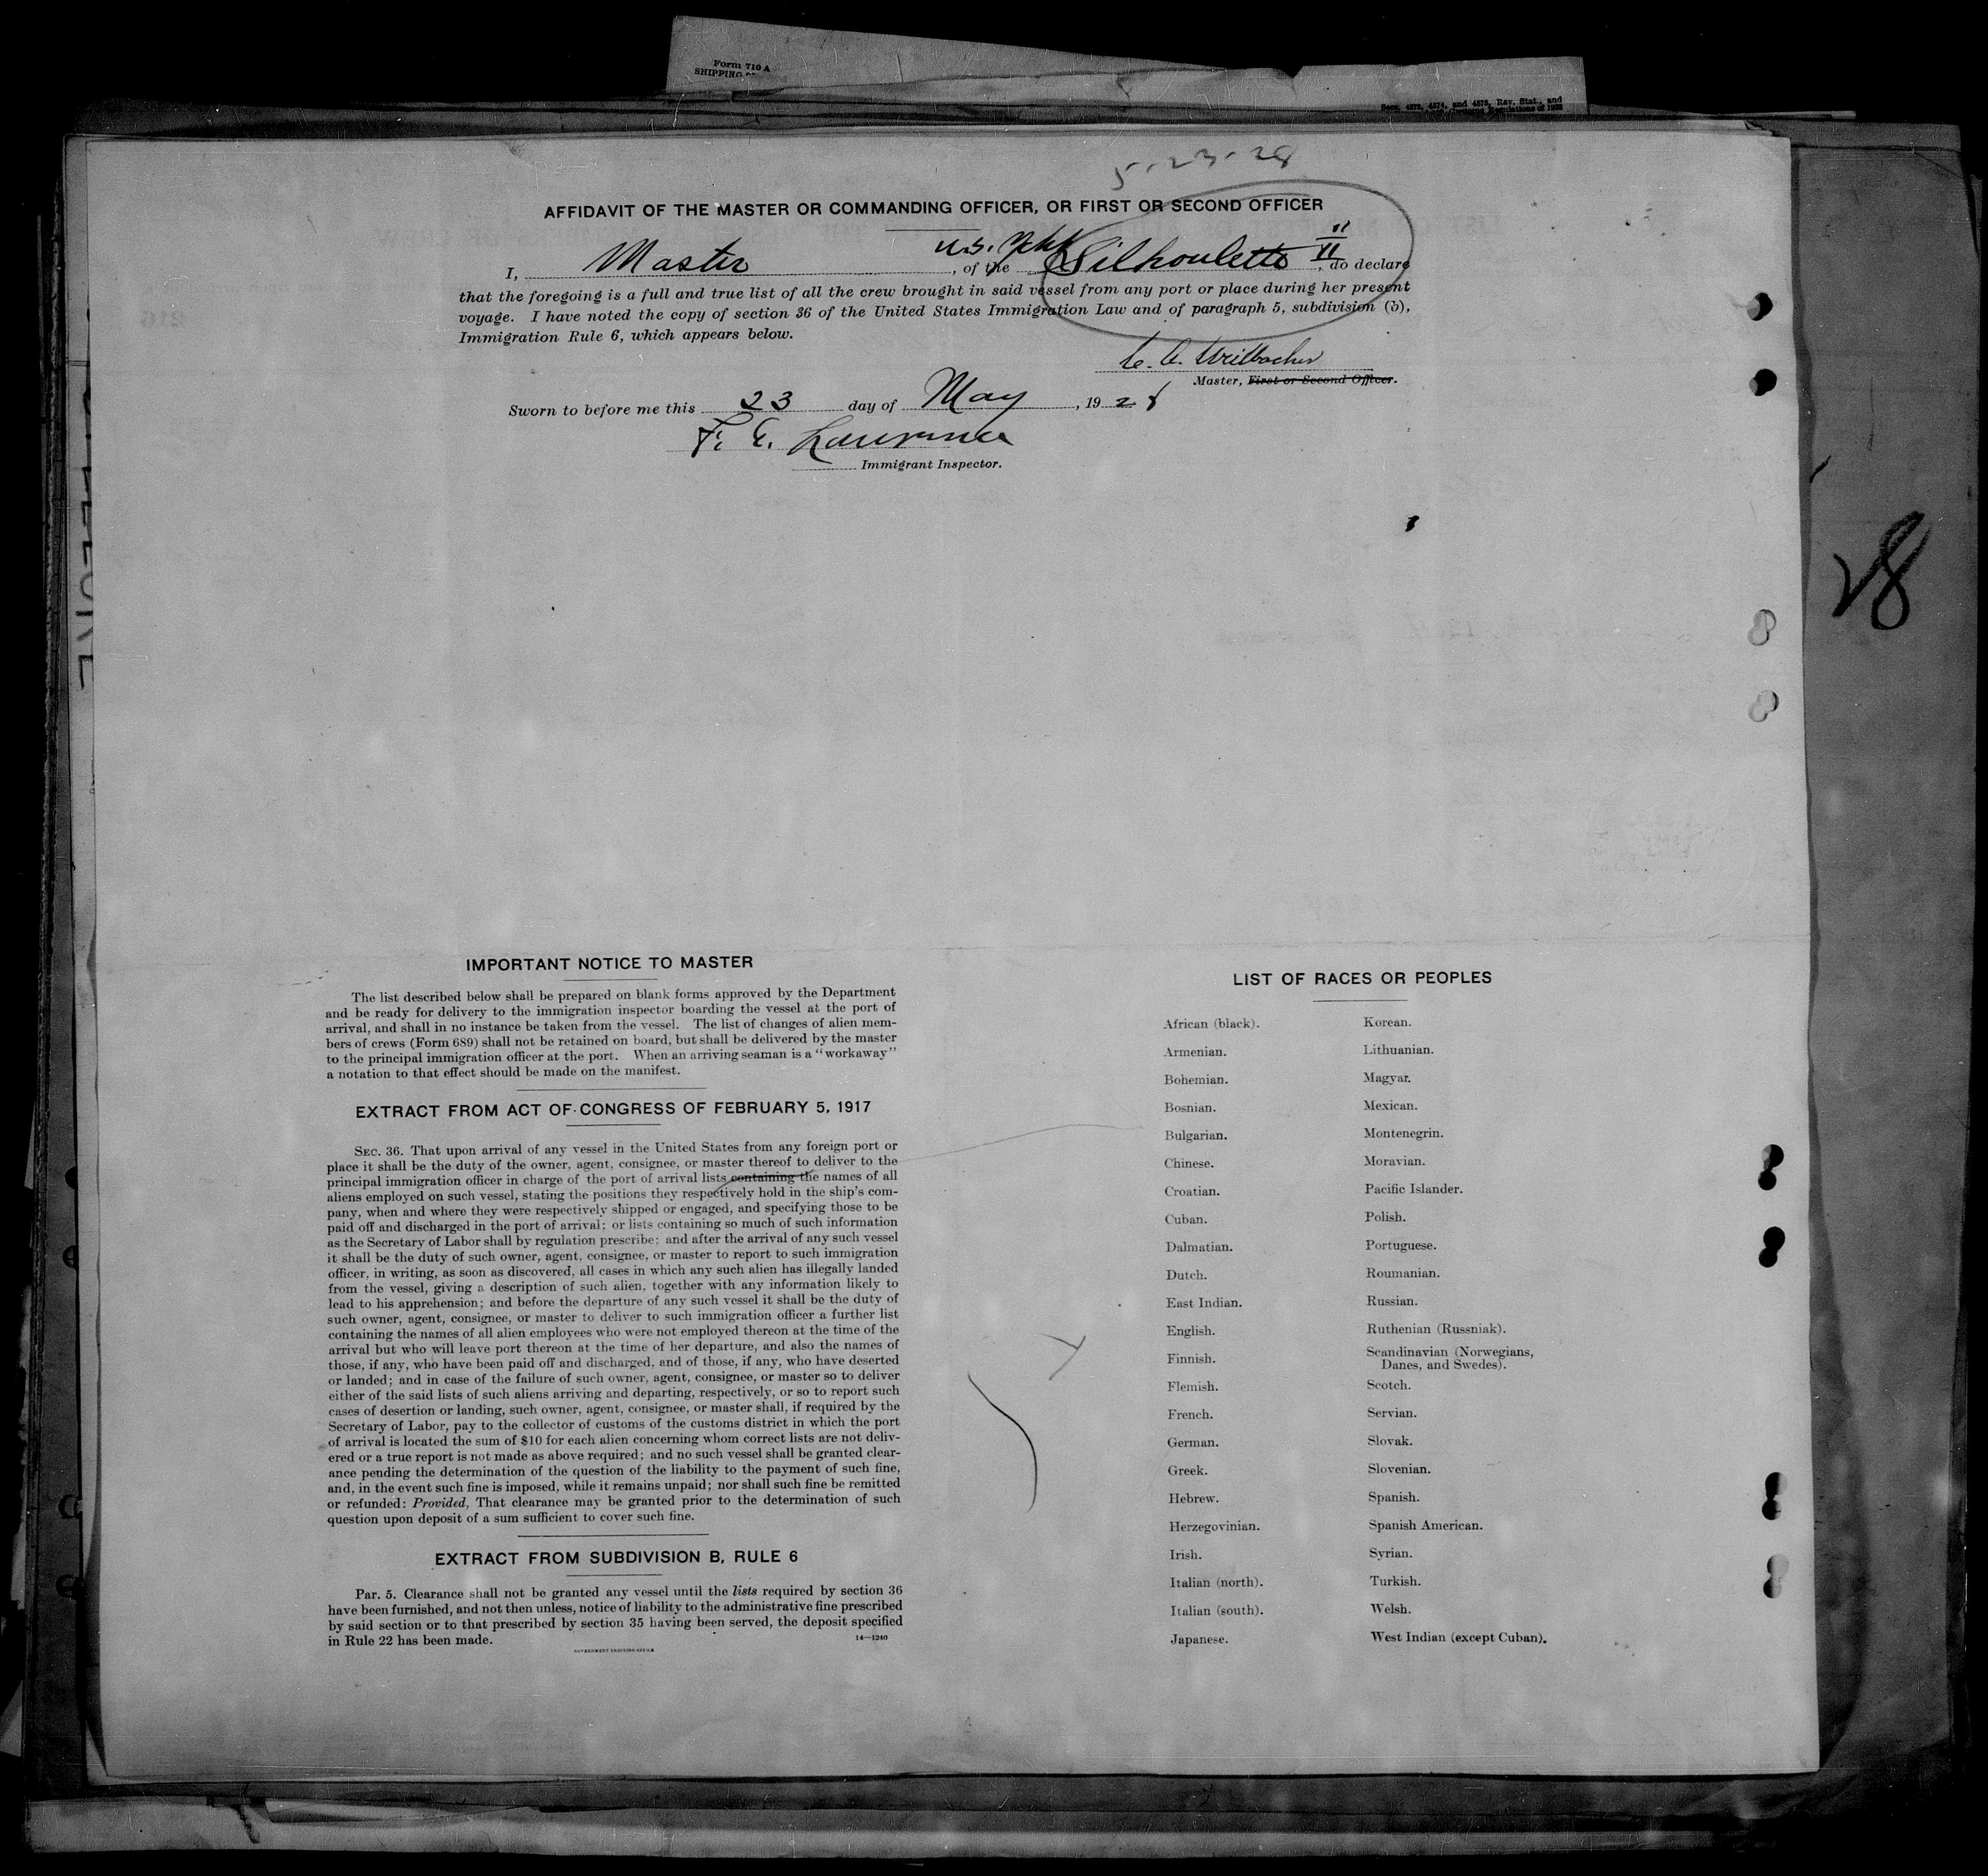 Form 710 A
SHIPPING
Secs. 4573, 4574, and 4575, Rev. Stat., and
Customs Regulations of 1923
5-23-28
AFFIDAVIT OF THE MASTER OR COMMANDING OFFICER, OR FIRST OR SECOND OFFICER
I, Master, of the U.S. Silhoulette II, do declare
that the foregoing is a full and true list of all the crew brought in said vessel from any port or place during her present
voyage. I have noted the copy of section 36 of the United States Immigration Law and of paragraph 5, subdivision (b),
Immigration Rule 6, which appears below.
Master, First or Second Officer.
Sworn to before me this 23 day of May, 1928
F. E. Lawrence
Immigrant Inspector.
28
IMPORTANT NOTICE TO MASTER
The list described below shall be prepared on blank forms approved by the Department
and be ready for delivery to the immigration inspector boarding the vessel at the port of
arrival, and shall in no instance be taken from the vessel. The list of changes of alien mem-
bers of crews (Form 689) shall not be retained on board, but shall be delivered by the master
to the principal immigration officer at the port. When an arriving seaman is a "workaway"
a notation to that effect should be made on the manifest.
EXTRACT FROM ACT OF CONGRESS OF FEBRUARY 5, 1917
SEC. 36. That upon arrival of any vessel in the United States from any foreign port or
place it shall be the duty of the owner, agent, consignee, or master thereof to deliver to the
principal immigration officer in charge of the port of arrival lists containing the names of all
aliens employed on such vessel, stating the positions they respectively hold in the ship's com-
pany, when and where they were respectively shipped or engaged, and specifying those to be
paid off and discharged in the port of arrival; or lists containing so much of such information
as the Secretary of Labor shall by regulation prescribe; and after the arrival of any such vessel
it shall be the duty of such owner, agent, consignee, or master to report to such immigration
officer, in writing, as soon as discovered, all cases in which any such alien has illegally landed
from the vessel, giving a description of such alien, together with any information likely to
lead to his apprehension; and before the departure of any such vessel it shall be the duty of
such owner, agent, consignee, or master to deliver to such immigration officer a further list
containing the names of all alien employees who were not employed thereon at the time of the
arrival but who will leave port thereon at the time of her departure, and also the names of
those, if any, who have been paid off and discharged, and of those, if any, who have deserted
or landed; and in case of the failure of such owner, agent, consignee, or master so to deliver
either of the said lists of such aliens arriving and departing, respectively, or so to report such
cases of desertion or landing, such owner, agent, consignee, or master shall, if required by the
Secretary of Labor, pay to the collector of customs of the customs district in which the port
of arrival is located the sum of $10 for each alien concerning whom correct lists are not deliv-
ered or a true report is not made as above required; and no such vessel shall be granted clear-
ance pending the determination of the question of the liability to the payment of such fine,
and, in the event such fine is imposed, while it remains unpaid; nor shall such fine be remitted
or refunded: Provided, That clearance may be granted prior to the determination of such
question upon deposit of a sum sufficient to cover such fine.
EXTRACT FROM SUBDIVISION B, RULE 6
Par. 5. Clearance shall not be granted any vessel until the lists required by section 36
have been furnished, and not then unless, notice of liability to the administrative fine prescribed
by said section or to that prescribed by section 35 having been served, the deposit specified
in Rule 22 has been made.
14—1240
GOVERNMENT PRINTING OFFICE
LIST OF RACES OR PEOPLES
African (black).
Armenian.
Bohemian.
Bosnian.
Bulgarian.
Chinese.
Croatian.
Cuban.
Dalmatian.
Dutch.
East Indian.
English.
Finnish.
Flemish.
French.
German.
Greek.
Hebrew.
Herzegovinian.
Irish.
Italian (north).
Italian (south).
Japanese.
Korean.
Lithuanian.
Magyar.
Mexican.
Montenegrin.
Moravian.
Pacific Islander.
Polish.
Portuguese.
Roumanian.
Russian.
Ruthenian (Russniak).
Scandinavian (Norwegians,
Danes, and Swedes).
Scotch.
Servian.
Slovak.
Slovenian.
Spanish.
Spanish American.
Syrian.
Turkish.
Welsh.
West Indian (except Cuban).